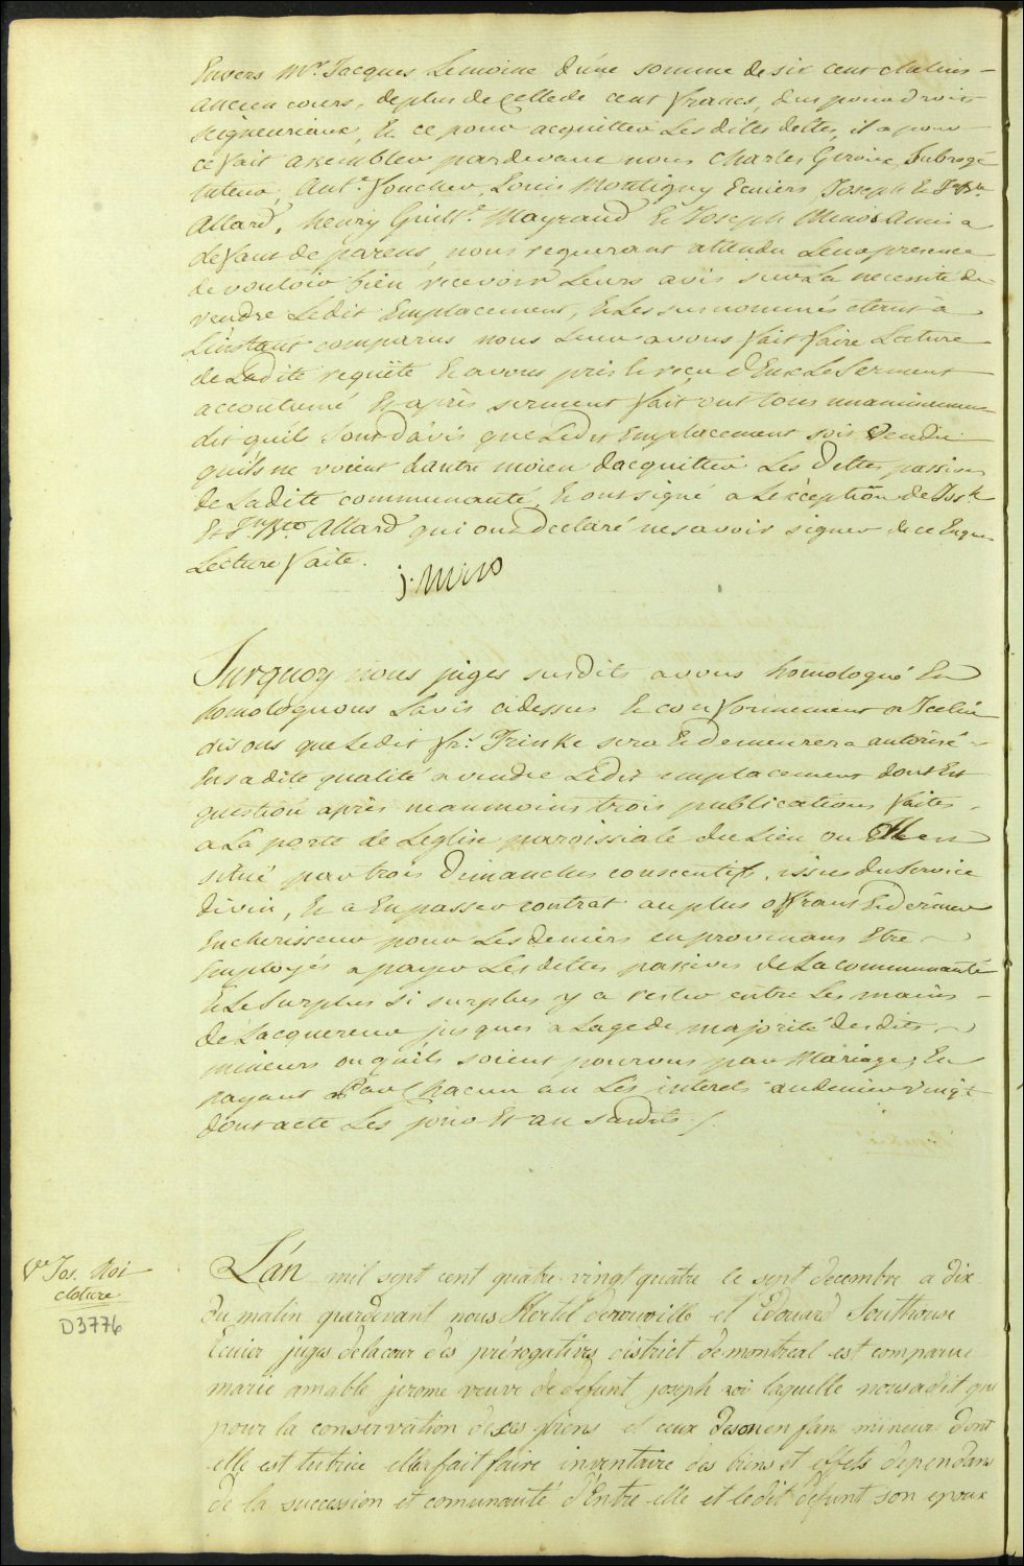 Envers Mr. Jacques Lemoine d'une somme de six cent chelins
ancien cours, de plus de Celle de cent francs, dus pour droits
seigneuriaux, Et ce pour acquitter Les dittes dettes, il a pour
ce fait assembler pardevant nous Charles Gervaise, Subrogé
tuteur, Ant.e Foucher, Louis Montigny Ecuiers, Joseph & J. Bte
Allard, henry Guill.e Mayrand & Joseph Mino Amis a
defaut de parens, nous requerant attendu Leur presence
de vouloir bien recevoir Leurs avis sur La necessité de
vendre Ledit Emplacement, & Les surnommés etant à
L'instant comparus nous Leur avons fait faire Lecture
de Ladite requête & avons pris & reçu d'Eux Le Serment
accoutumé Et après serment fait ont tous unanimement
dit qu'ils sont d'avis que Ledit Emplacement soit Vendu
qu'ils ne voient d'autre moien d'acquitter Les Dettes passives
de La ditte communauté, & ont signé a L'exception de Josh
Et Jn Bte Allard qui ont declaré ne savoir signer de ce Enquis
Lecture faite.
j. Mino
Surquoy nous juges susdits avons homologué Et
homologuons L'avis cidessus & conformement a Icelui
disons que Ledit fr. Trinke sera & demeurera autorisé
En sa dite qualité a vendre Ledit emplacement dont Est
question après neanmoins trois publications faites
a La porte de Leglise paroissiale du Lieu ou Il en
situé par trois Dimanches consecutifs, issue du Service
divin, & a En passer contrat au plus offrant & dernier
Encherisseur pour Les deniers en provenans Etre
Employés a payer Les dettes passives de La communauté
& Le Surplus si surplus y a rester entre Les mains
de Lacquereur jusques a Lage de majorité desdits
mineurs ou qu'ils soient pourvus par Mariage, En
payant Par Chacun an Les interets au denier vingt
dont acte Les jour Et an susdits ./.
Ve Jos. Roi
cloture
D3776
L'an mil sept cent quatre vingt quatre le sept decembre a dix
du matin pardevant nous Hertel derouville et Edouard Southouse
Ecuier juges de la cour des prérogatives district de montreal est comparue
marie amable jerome veuve de defunt joseph roi laquelle nous a dit que
pour la conservation de ses biens et ceux de son enfant mineur dont
elle est tutrice elle a fait faire inventaire des biens et effets dependans
de la succession et comunauté d'Entre elle et ledit defunt son epoux